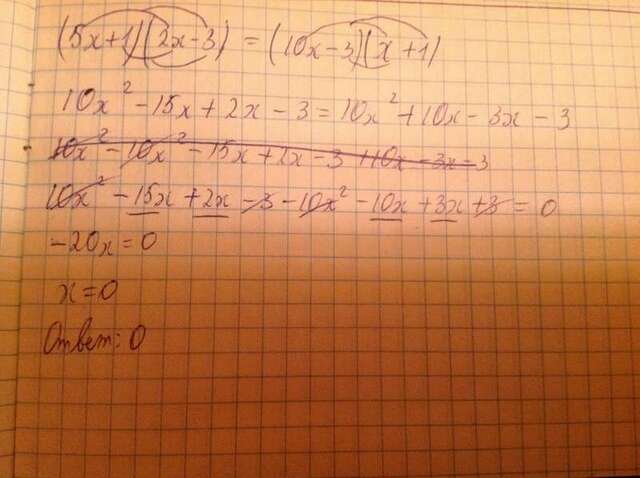 (5x+1)(2x-3) = (10x-3)(x+1)
10x² - 15x + 2x - 3 = 10x² + 10x - 3x - 3
10x² - 10x² - 15x + 2x - 3 + 10x - 3x - 3
10x² - 15x + 2x - 3 - 10x² - 10x + 3x + 3 = 0
-20x = 0
x = 0
Ответ: 0